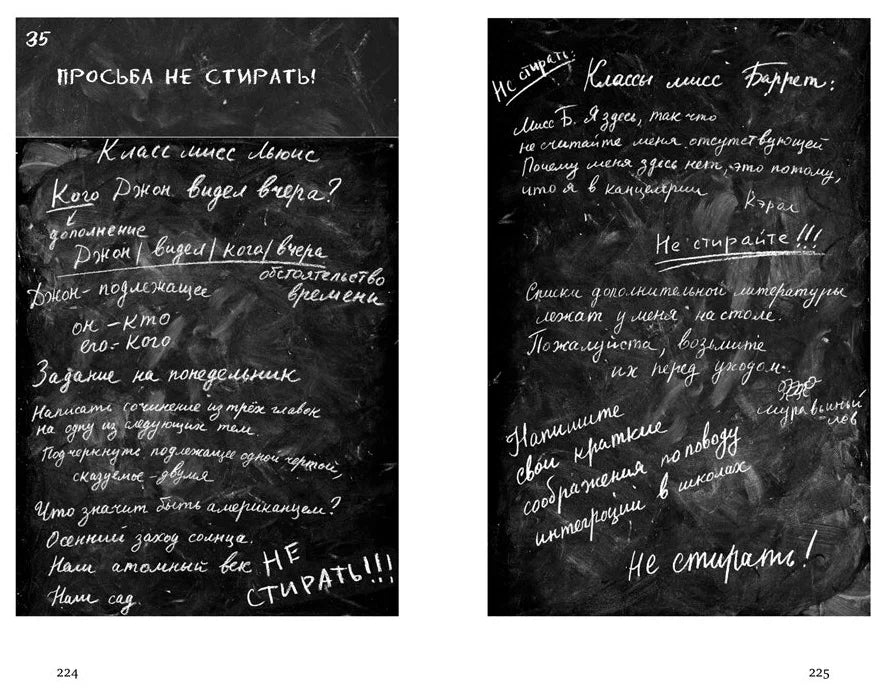 35
ПРОСЬБА НЕ СТИРАТЬ!
Класс мисс Льюис
Кого Джон видел вчера?
дополнение
Джон/ видел/ кого/ вчера
обстоятельство
времени
Джон - подлежащее
он - кто
его - кого
Задание на понедельник
Написать сочинение из трёх главок
на одну из следующих тем.
Подчеркнуть подлежащее одной чертой,
сказуемое - двумя
Что значит быть американцем?
Осенний заход солнца.
Наш атомный век
Наш сад.
НЕ
СТИРАТЬ!!!
224
Не стирать:
Классы мисс Баррет:
Мисс Б. Я здесь, так что
не считайте меня отсутствующей
Почему меня здесь нет, это потому,
что я в канцелярии
Кэрол
Не стирайте!!!
Списки дополнительной литературы
лежат у меня на столе.
Пожалуйста, возьмите
их перед уходом.
муравьиный
лов
Напишите
свои краткие
соображения по поводу
интеграции в школах
Не стирать!
225